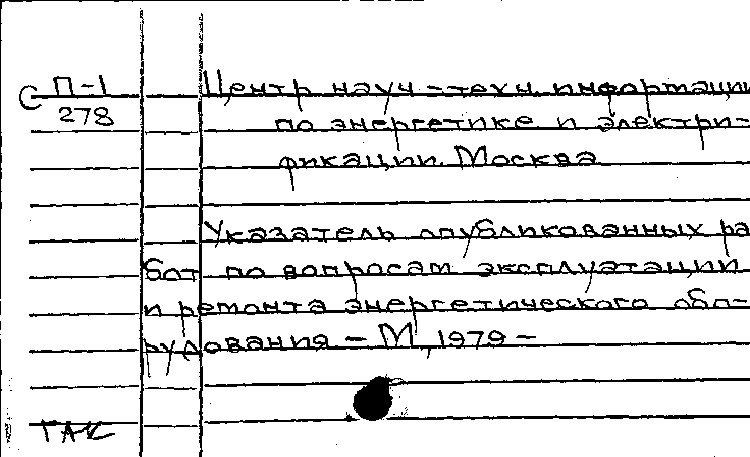 С П-1
278
Центр науч-техн. информации
по энергетике и электри-
фикации. Москва
Указатель опубликованных ра
бот по вопросам эксплуатации
и ремонта энергетического обо-
рудования – М, 1979 –
ГАК